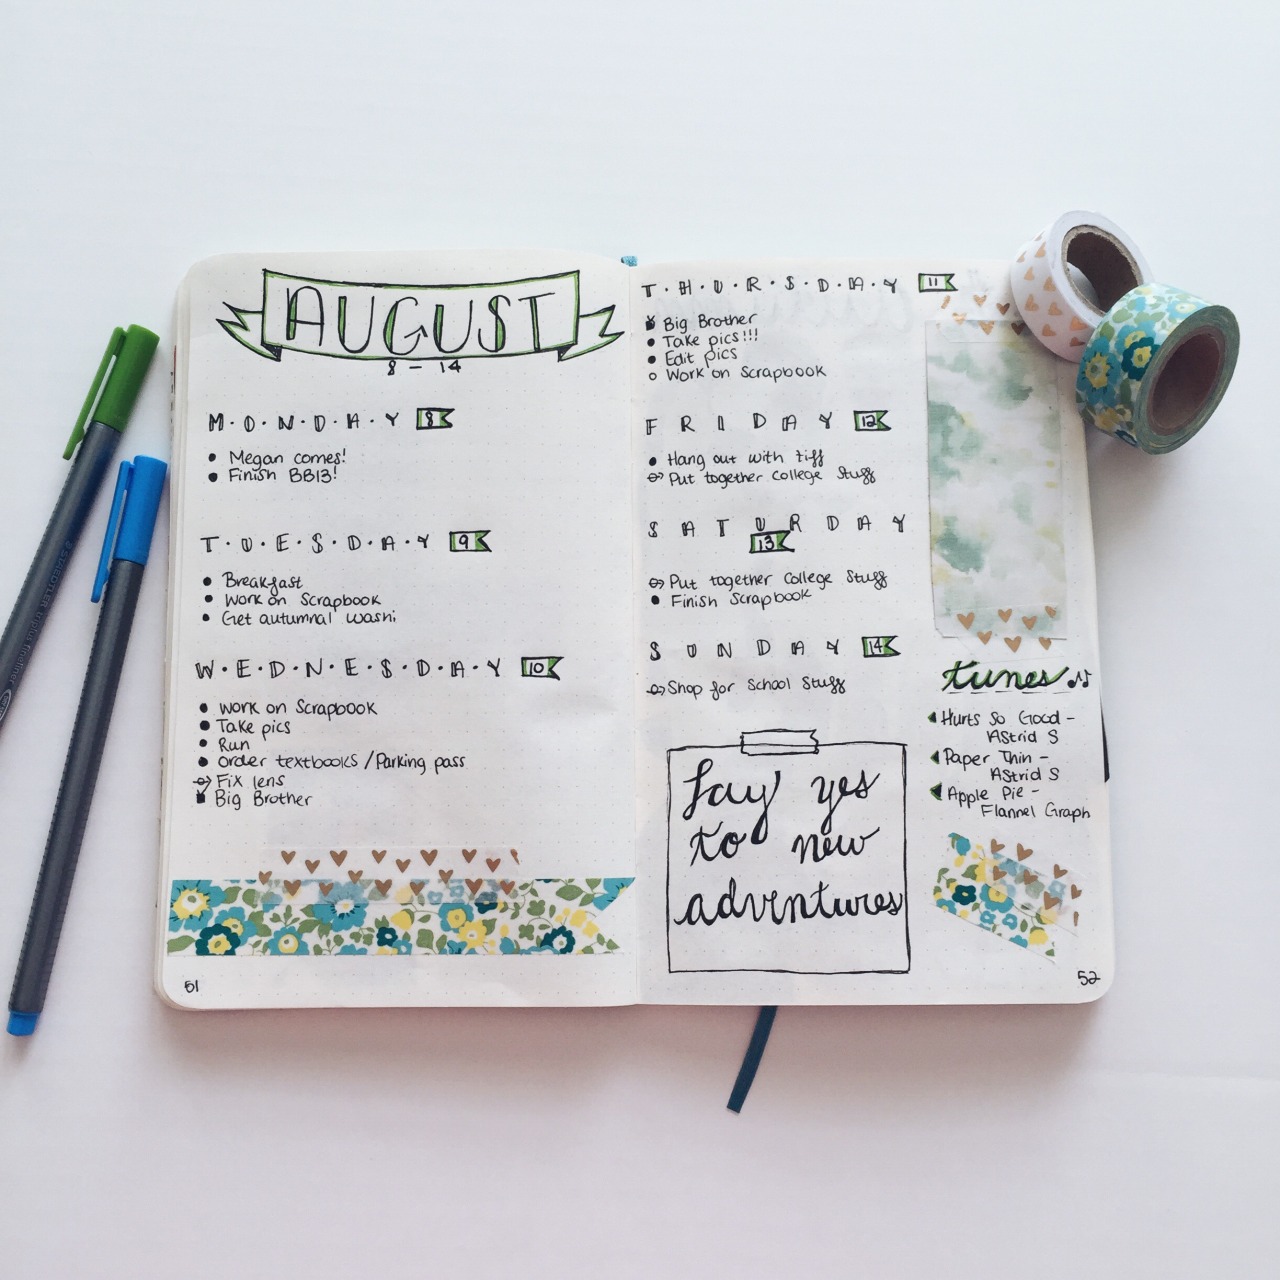 AUGUST
8 - 14
M·O·N·D·A·Y 8
Megan comes!
Finish BB13!
T·U·E·S·D·A·Y 9
Breakfast
Work on Scrapbook
Get autumnal washi
W·E·D·N·E·S·D·A·Y 10
Work on Scrapbook
Take pics
Run
Order textbooks / Parking pass
Fix lens
Big Brother
51
T·H·U·R·S·D·A·Y 11
Big Brother
Take pics!!!
Edit pics
Work on Scrapbook
F R I D A Y 12
Hang out with tiff
Put together College Stuff
S A T U R D A Y
13
Put together College Stuff
Finish Scrapbook
S U N D A Y 14
Shop for School Stuff
Say yes
to new
adventures
tunes
Hurts So Good -
Astrid S
Paper Thin -
Astrid S
Apple Pie -
Flannel Graph
52
STAEDTLER triplus fineliner